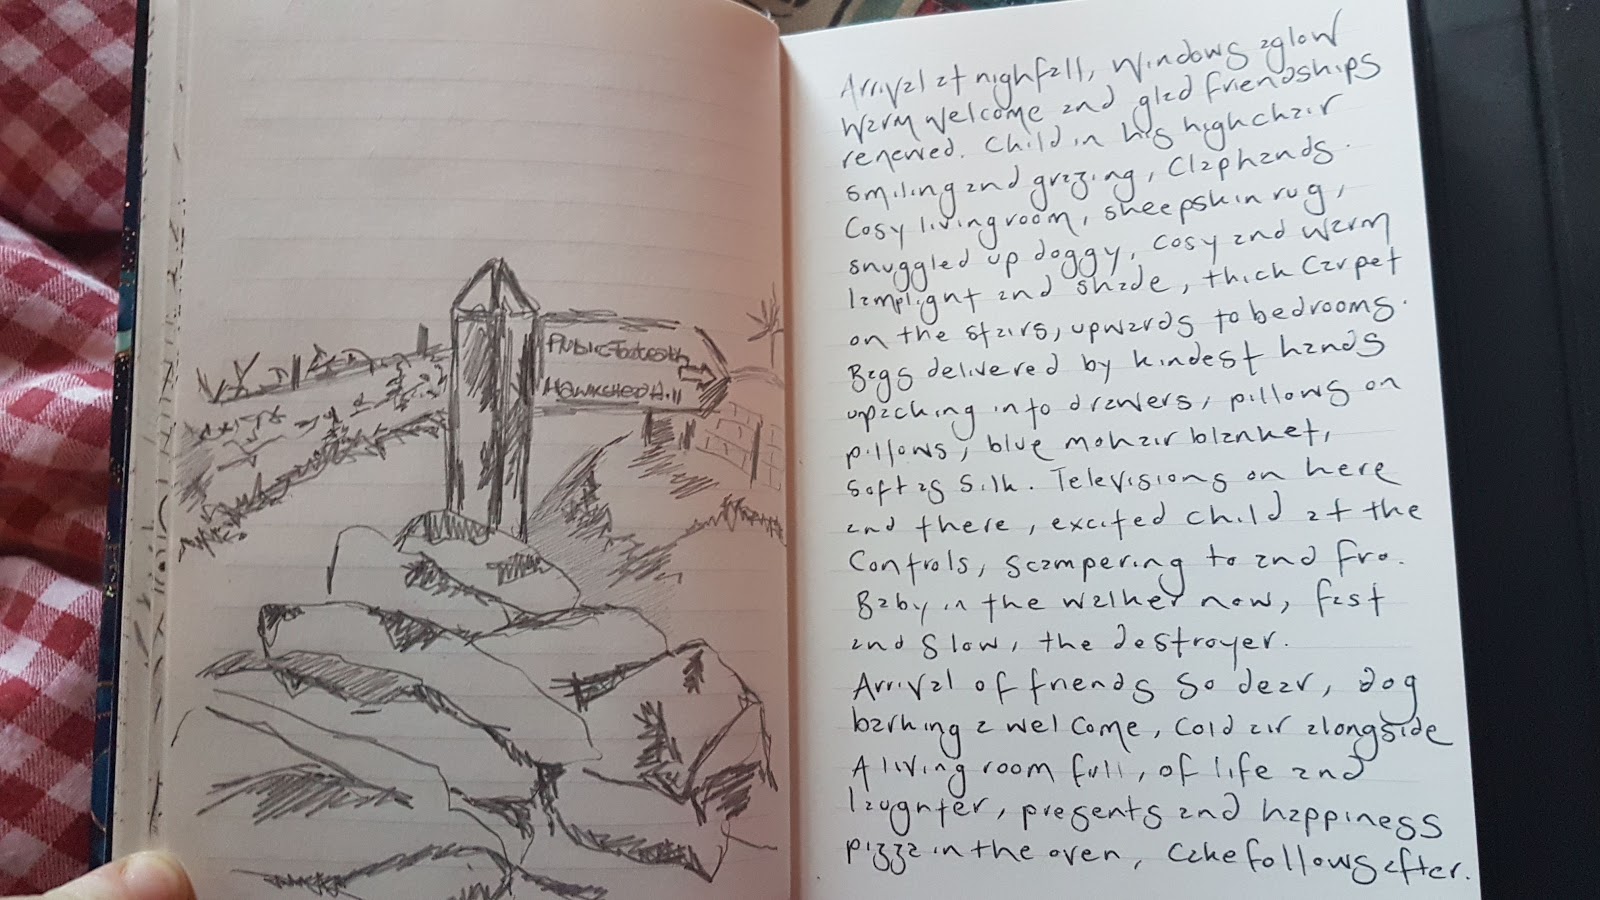 Public Footpath
Hawkshead Hill
Arrival at nighfall, Windows aglow
Warm Welcome and glad friendships
renewed. Child in his highchair
smiling and grazing, Claphands.
Cosy livingroom, sheepskin rug,
snuggled up doggy, cosy and warm
lamplight and shade, thick Carpet
on the stairs, upwards to bedrooms.
Bags delivered by kindest hands
unpacking into drawers, pillows on
pillows, blue mohair blanket,
Soft as Silk. Televisions on here
and there, excited child at the
Controls, Scampering to and fro.
Baby in the walker now, fast
and slow, the destroyer.
Arrival of friends so dear, dog
barking a welcome, Cold air alongside
A living room full, of life and
laughter, presents and happiness
pizza in the oven, Cake follows after.